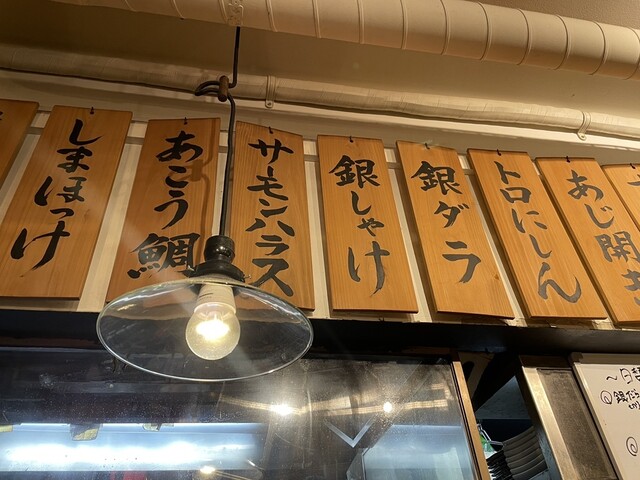 しまほっけ
あこう鯛
サーモンハラス
銀しゃけ
銀ダラ
トロにしん
あじ開
銀だら